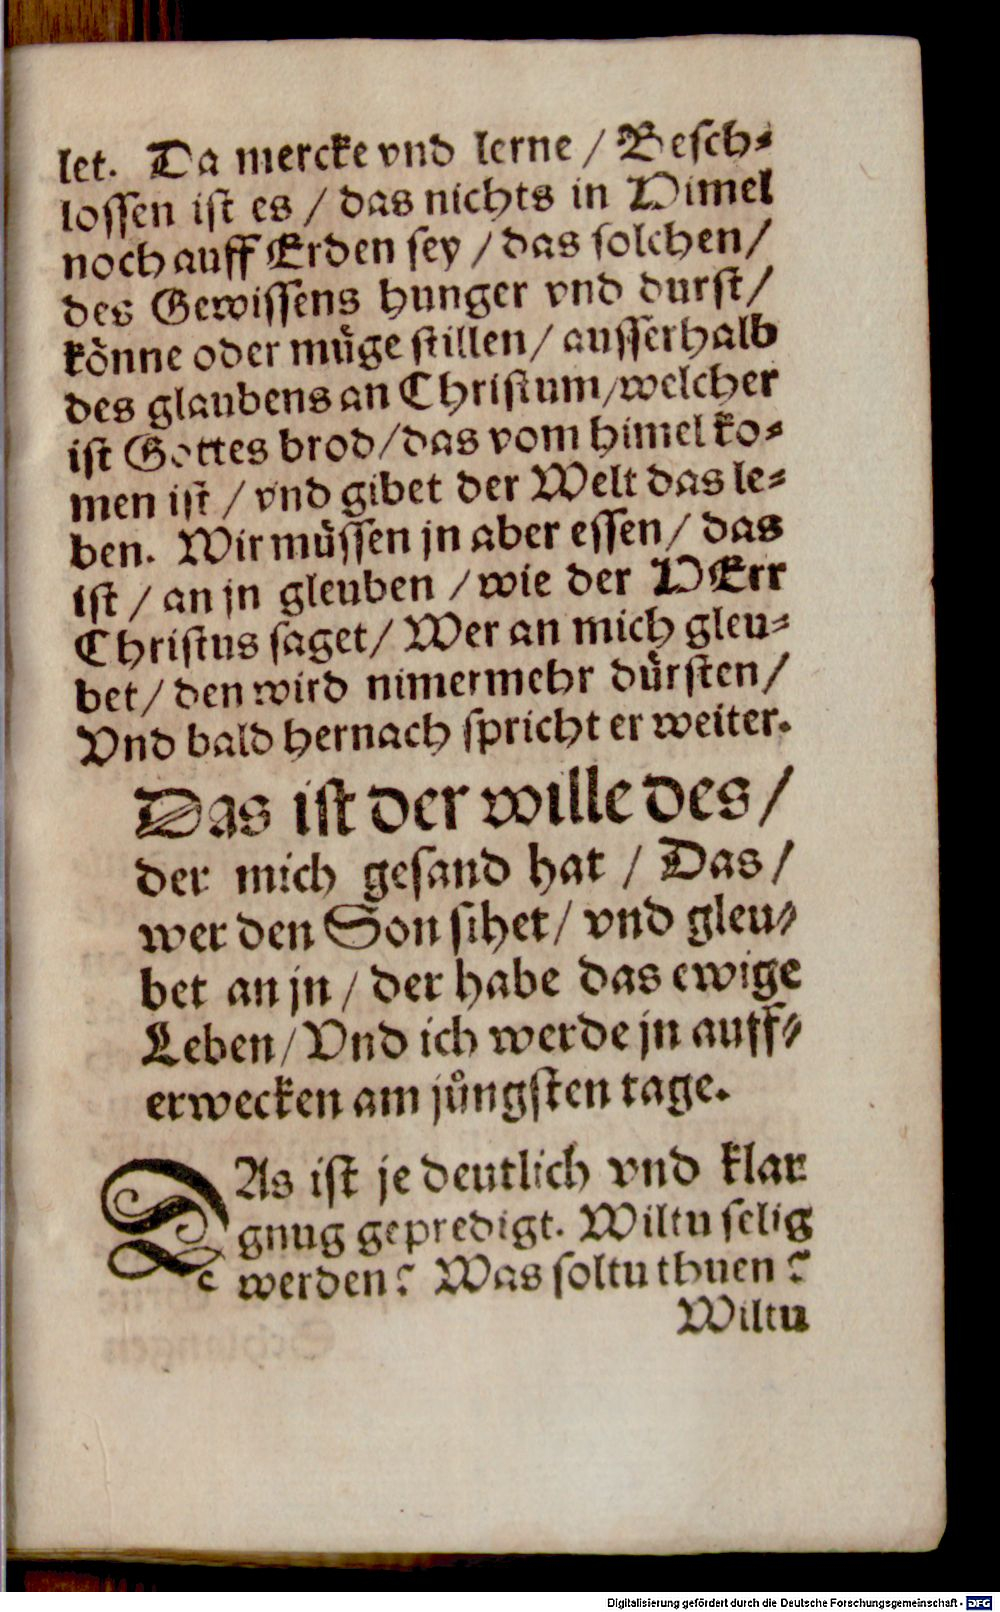 let. Da mercke vnd lerne / Besch-
lossen ist es / das nichts in Himel
noch auff Erden sey / das solchen /
des Gewissens hunger vnd durst /
könne oder müge stillen / ausserhalb
des glaubens an Christum / welcher
ist Gottes brod / das vom himel ko-
men ist / vnd gibet der Welt das le-
ben. Wir müssen jn aber essen / das
ist / an jn gleuben / wie der HErr
Christus saget / Wer an mich gleu-
bet / den wird nimermehr dürsten /
Vnd bald hernach spricht er weiter.
Das ist der wille des /
der mich gesand hat / Das /
wer den Son sihet / vnd gleu-
bet an jn / der habe das ewige
Leben / Vnd ich werde jn auff-
erwecken am jůngsten tage.
DAs ist je deutlich vnd klar
gnug gepredigt. Wiltu selig
werden? Was soltu thuen?
Wiltu
Digitalisierung gefördert durch die Deutsche Forschungsgemeinschaft - DFG